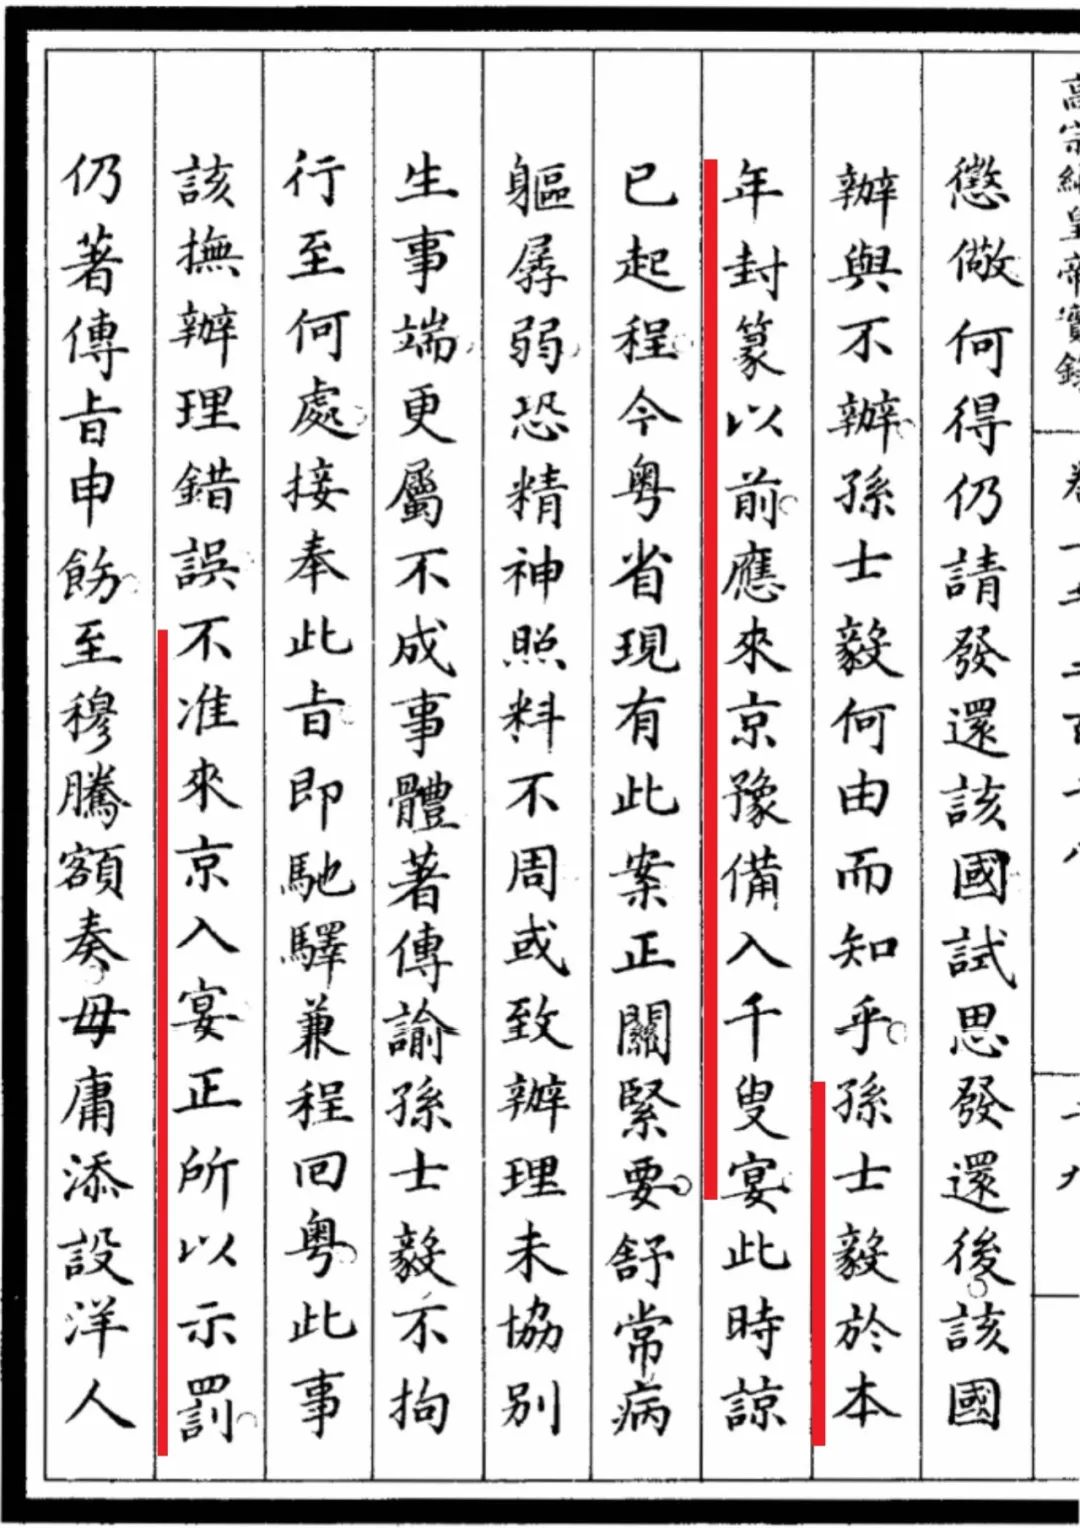 高宗純皇帝實錄 卷一千二百十八 二九
懲儆何得仍請發還該國試思發還後該國
辦與不辦孫士毅何由而知乎孫士毅於本
年封篆以前應來京豫備入千叟宴此時諒
已起程今粵省現有此案正關緊要舒常病
軀孱弱恐精神照料不周或致辦理未協別
生事端更屬不成事體著傳諭孫士毅不拘
行至何處接奉此旨即馳驛兼程回粵此事
該撫辦理錯誤不准來京入宴正所以示罰
仍著傳旨申飭至穆騰額奏毋庸添設洋人